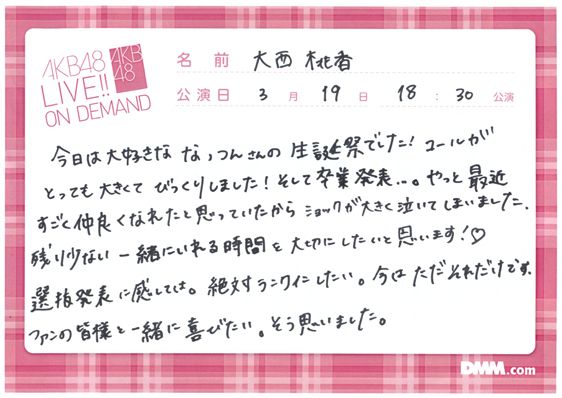 AKB48
LIVE!!
ON DEMAND
AKB
48
名前 大西 桃香
公演日 3月19日 18:30公演
今日は大好きな なっつんさんの 生誕祭でした!コールが
とっても大きくて びっくりしました!そして卒業発表…。やっと最近
すごく仲良くなれたと思っていたから ショックが大きく泣いてしまいました。
残り少ない 一緒にいれる時間を大切にしたいと思います!♡
選抜発表に感しては。絶対ランクインしたい。今は ただそれだけです。
ファンの皆様と一緒に喜びたい。そう思いました。
DMM.com